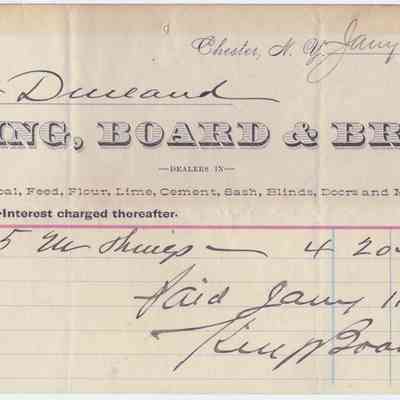 Chester, N. Y. Jany
Durland
ING, BOARD & BR
—DEALERS IN—
oal, Feed, Flour, Lime, Cement, Sash, Blinds, Doors and M
Interest charged thereafter.
5 M 4 20
Paid Jany 1
King Boar